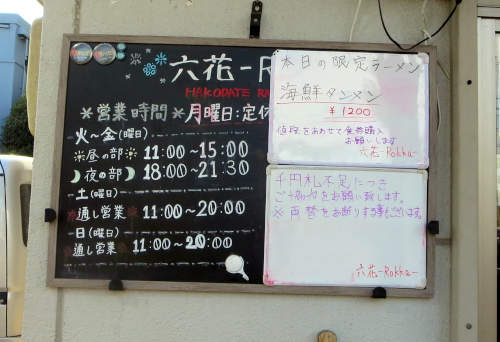 六花-R
HAKODATE RA
※営業時間※月曜日:定休
火~金(曜日)
昼の部 11:00~15:00
夜の部 18:00~21:30
土(曜日)
通し営業 11:00~20:00
日(曜日)
通し営業 11:00~20:00
本日の限定ラーメン
海鮮タンメン
¥1200
値段をあわせて食券購入
お願いします
六花-Rokka-
千円札不足につき
ご協力をお願い致します。
※両替をお断りする事もございます。
六花-Rokka-